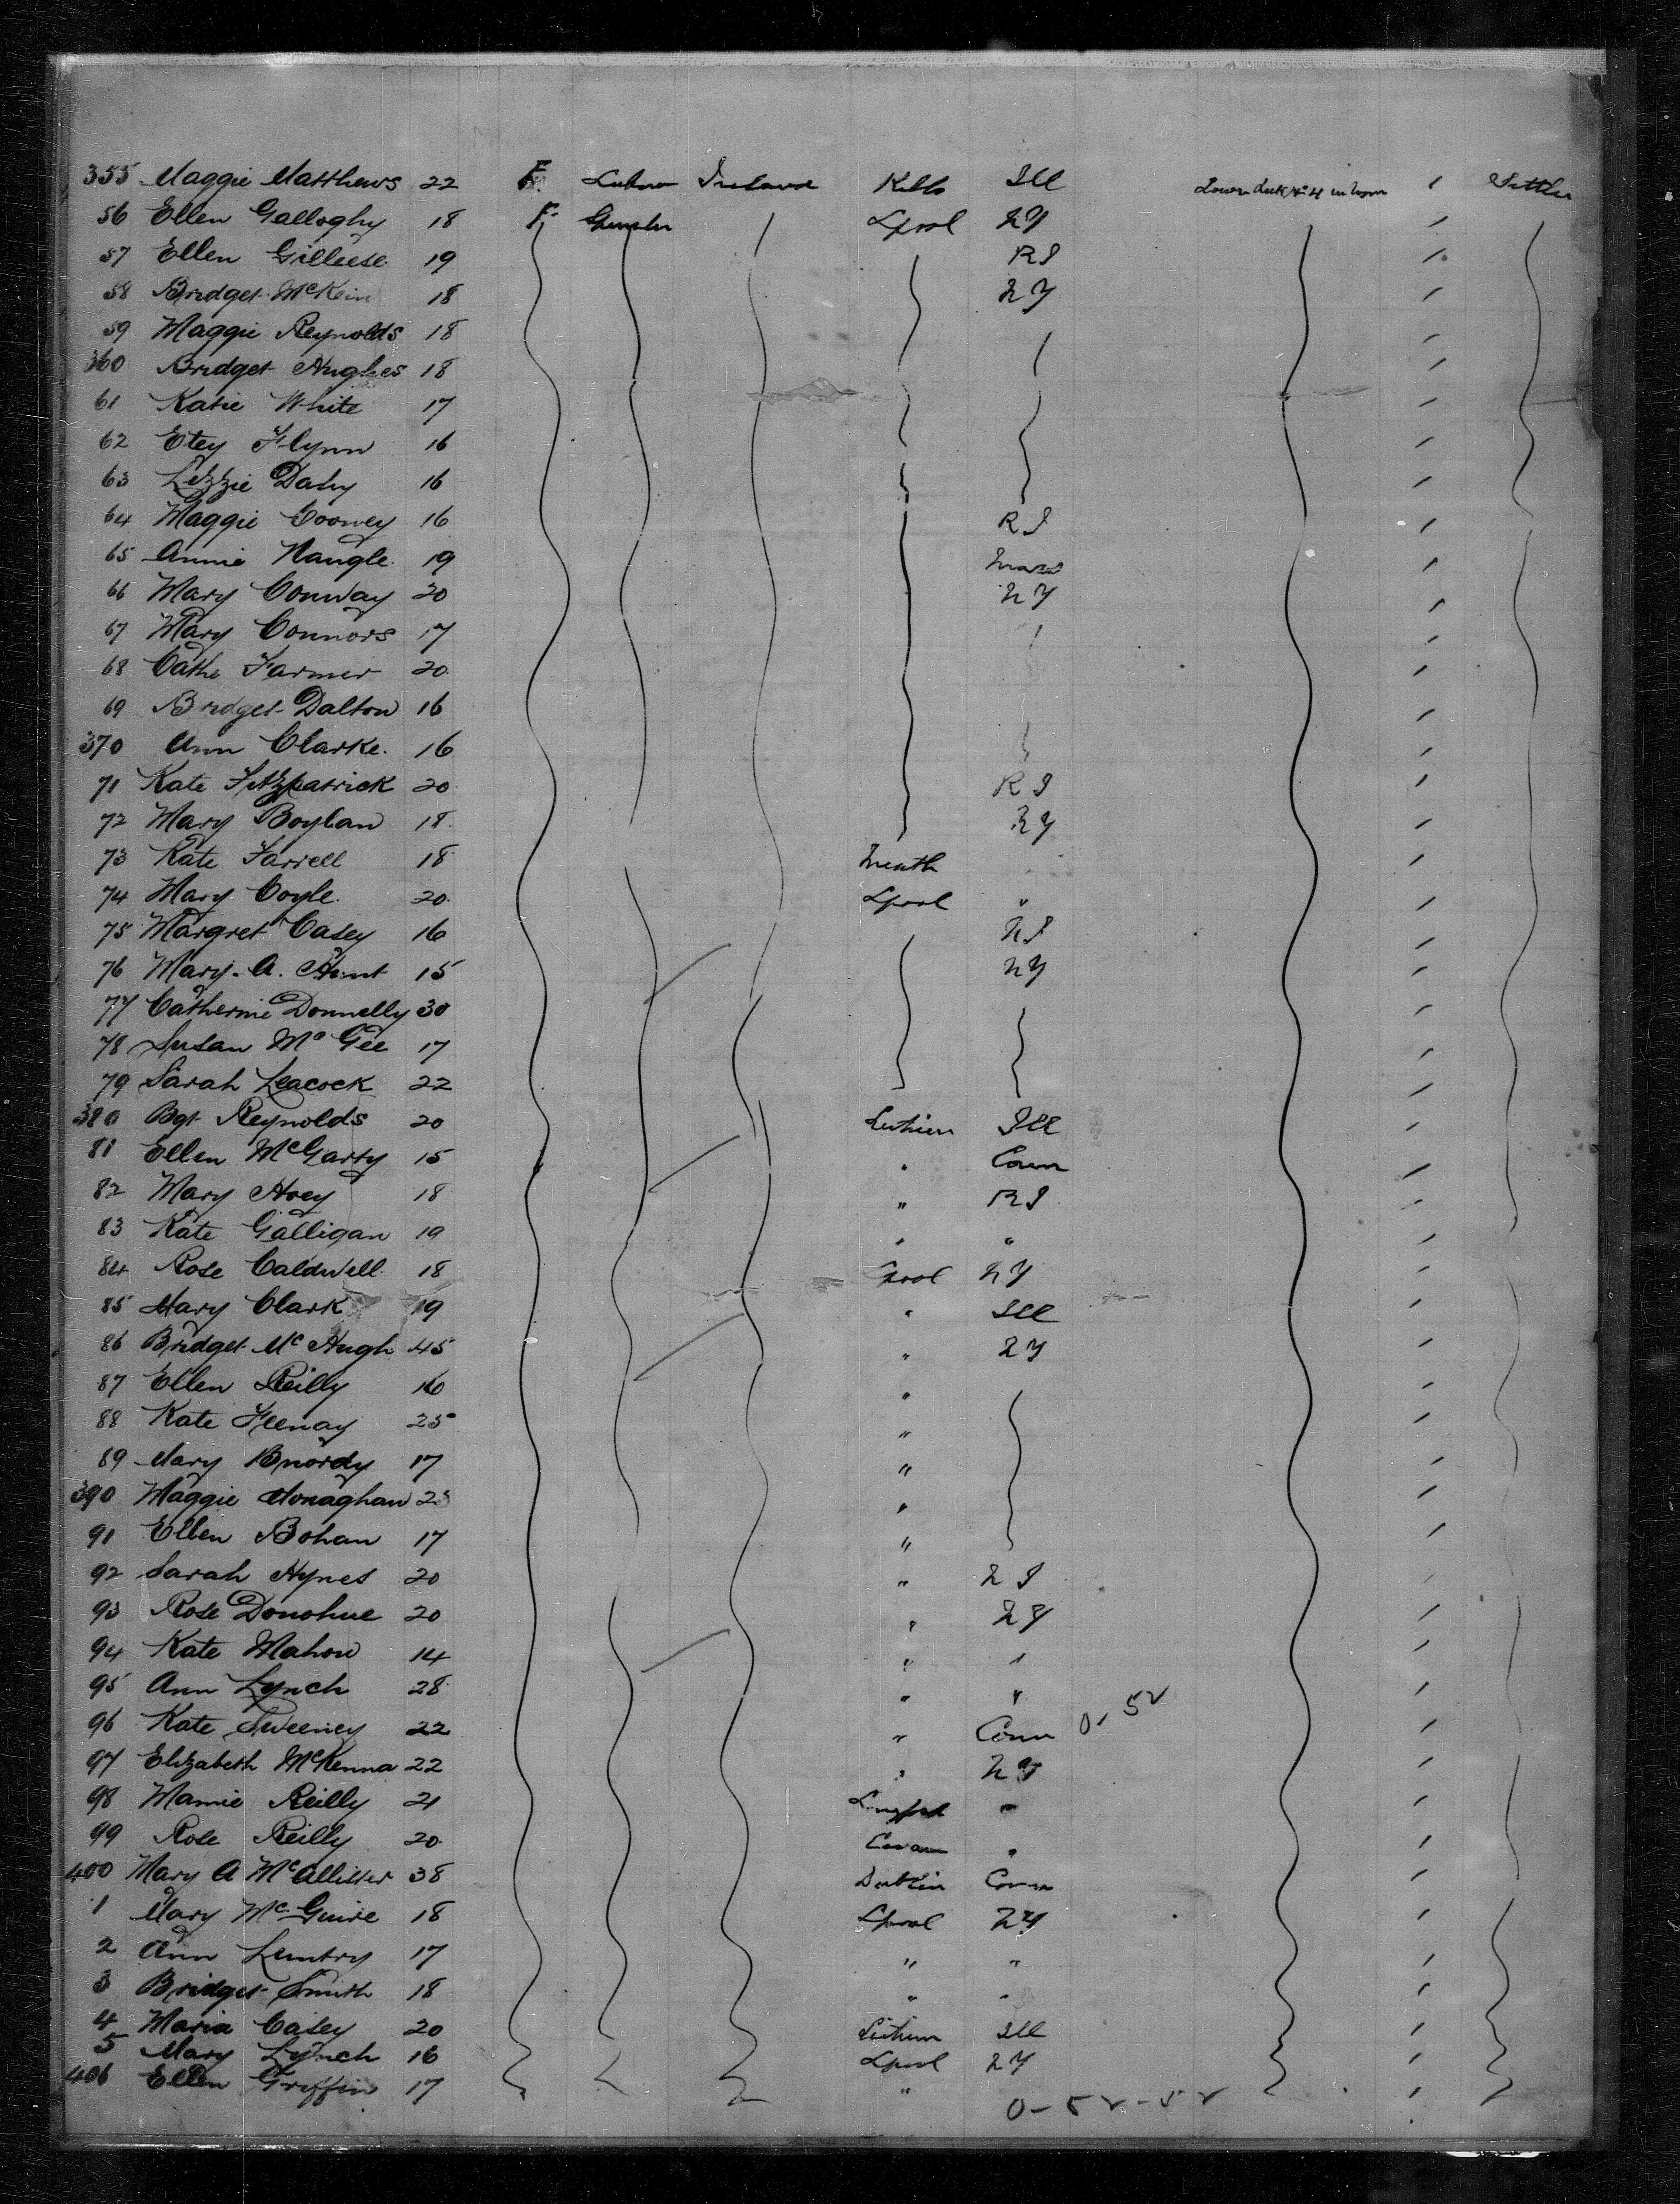 355 Maggie Matthews 22 F Ireland Kells Ill Lower deck No 4 1 Settler
56 Ellen Galloghy 18 F Spinster Lpool NY
57 Ellen Gilleese 19 RI
58 Bridget 18 NY
59 Maggie Reynolds 18
360 Bridget Hughes 18
61 Katie White 17
62 Etey Flynn 16
63 Lizzie Daly 16
64 Maggie Cooney 16 RI
65 Annie Nangle 19 Mass
66 Mary Conway 20 NY
67 Mary Connors 17
68 Cathe Farmer 20
69 Bridget Dalton 16
370 Ann Clarke 16
71 Kate Fitzpatrick 20 RI
72 Mary Boylan 18 NY
73 Kate Farrell 18 Meath
74 Mary Coyle 20 Lpool "
75 Margret Casey 16 NJ
76 Mary A. Hunt 15 NY
77 Catherine Donnelly 30
78 Susan McGee 17
79 Sarah Leacock 22
380 Bgt Reynolds 20 Leitrim Ill
81 Ellen McGarty 15 " Conn
82 Mary Hoey 18 " RI
83 Kate Galligan 19 " "
84 Rose Caldwell 18 Lpool NY
85 Mary Clark 19 " Ill
86 Bridget McHugh 45 " NY
87 Ellen Reilly 16 "
88 Kate Feenay 25 "
89 Mary 17 "
390 Maggie Monaghan "
91 Ellen Bohan 17 "
92 Sarah Hynes 20 " NJ
93 Rose Donohue 20 " NY
94 Kate Mahon 14 " "
95 Ann Lynch 28 " "
96 Kate Sweeney 22 " Conn 0-52
97 Elizabeth McKenna 22 " NY
98 Mamie Reilly 21 Longford "
99 Rose Reilly 20 Cavan "
400 Mary A McAllister 38 Dublin Conn
1 Mary McGuire 18 Lpool NY
2 Ann 17 " "
3 Bridget Smith 18 " "
4 Maria Casey 20 Leitrim Ill
5 Mary Lynch 16 Lpool NY
406 Ellen Griffin 17 "
0-52-52